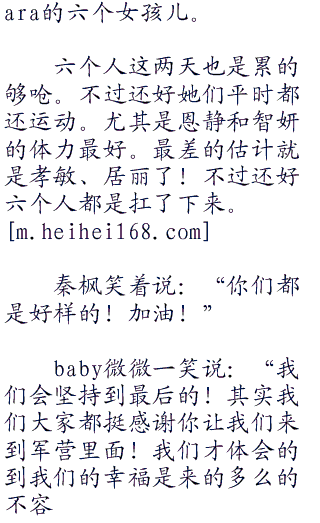 ara的六个女孩儿。
六个人这两天也是累的
够呛。不过还好她们平时都
还运动。尤其是恩静和智妍
的体力最好。最差的估计就
是孝敏、居丽了！不过还好
六个人都是扛了下来。
[m.heihei168.com]
秦枫笑着说：“你们都
是好样的！加油！”
baby微微一笑说：“我
们会坚持到最后的！其实我
们大家都挺感谢你让我们来
到军营里面！我们才体会的
到我们的幸福是来的多么的
不容